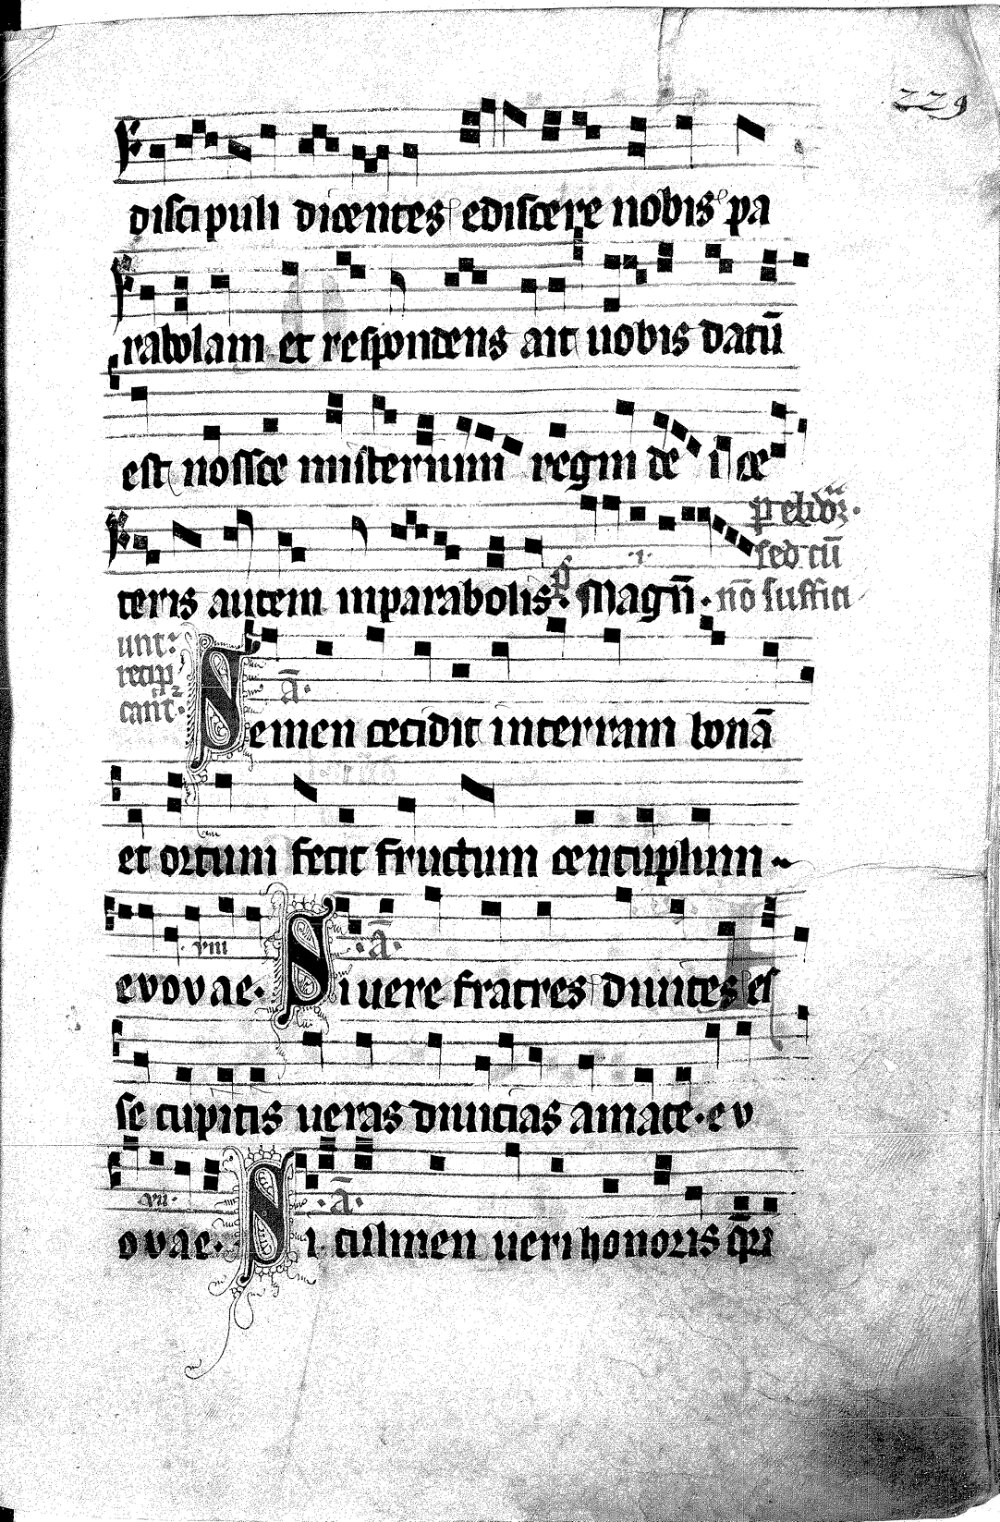 229
discipuli dicentes edissere nobis pa
rabolam et respondens ait uobis datū
est nosse misterium regni dei ce
teris autem inparabolis. Magn̄.
p ebdo.
sed cū
nō suffici
unt:
recip
cant.
Semen cecidit interram bonā
ā.
et ortum fecit fructum centuplum
evovae. Si uere fratres diuites es
viii
ā.
se cupitis ueras diuicias amate. ev
ovae. Si culmen ueri honoris q̄ri
vii.
ā.